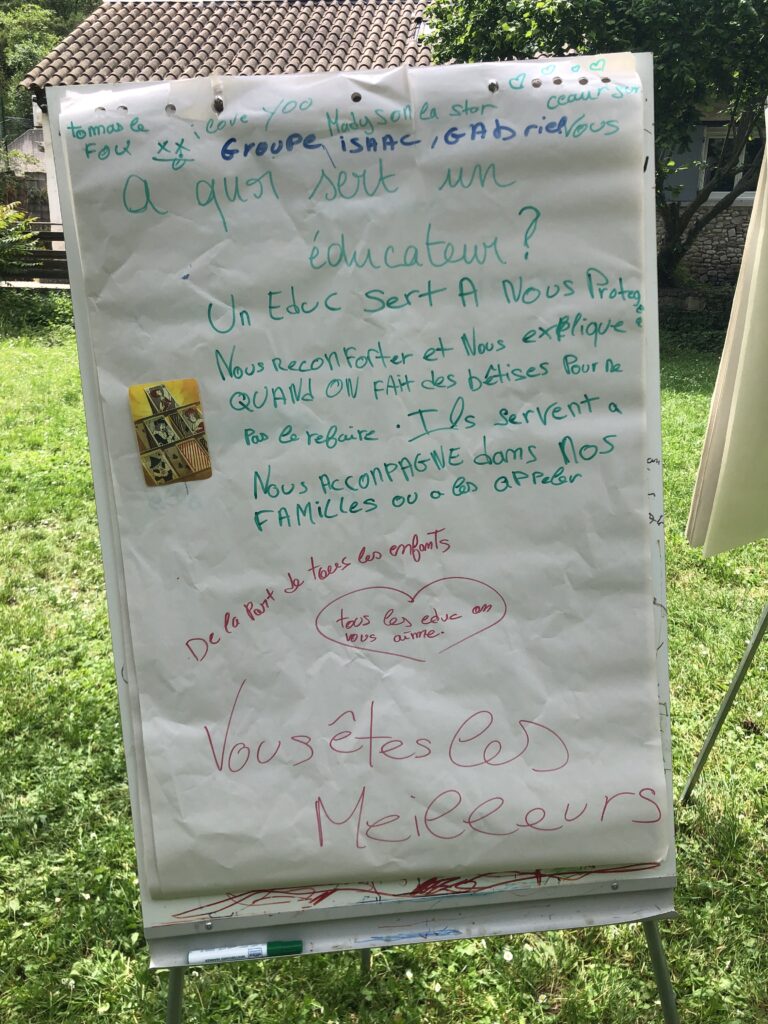 tomas le i love yoo Madyson la star ceaur sur
FOU XX GROUPE, iSAAC, GAbriel Vous
A quoi sert un
éducateur?
Un Educ sert A Nous Proteg
Nous Reconforter et Nous explique
QUAND ON FAit des bêtises Pour Ne
Pas le refaire. Ils servent a
Nous ACCONPAGNE dans Nos
FAMiLLES ou a les appeler
De la Part de tous les enfants
tous les educ on
vous aime.
Vous êtes les
Meilleurs